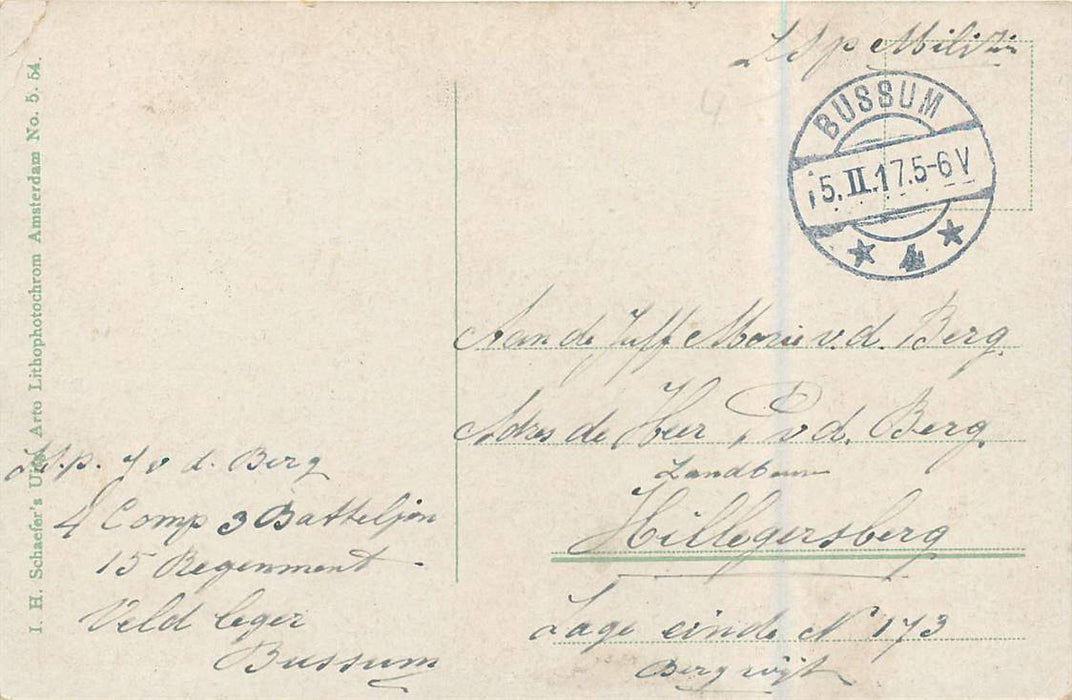 Militie
BUSSUM
15.II.17.5-6 V
4
Aan de Juff Marie v.d. Berg
Adres de Heer P v d. Berg
Landbouw
Hillegersberg
Lage einde N 173
Bergwijk
J v d. Berg
4 Comp 3 Batteljon
15 Regenment
Veld leger
Bussum
I. H. Schaefer's Uitg. Arto Lithophotochrom Amsterdam No. 5. 54.